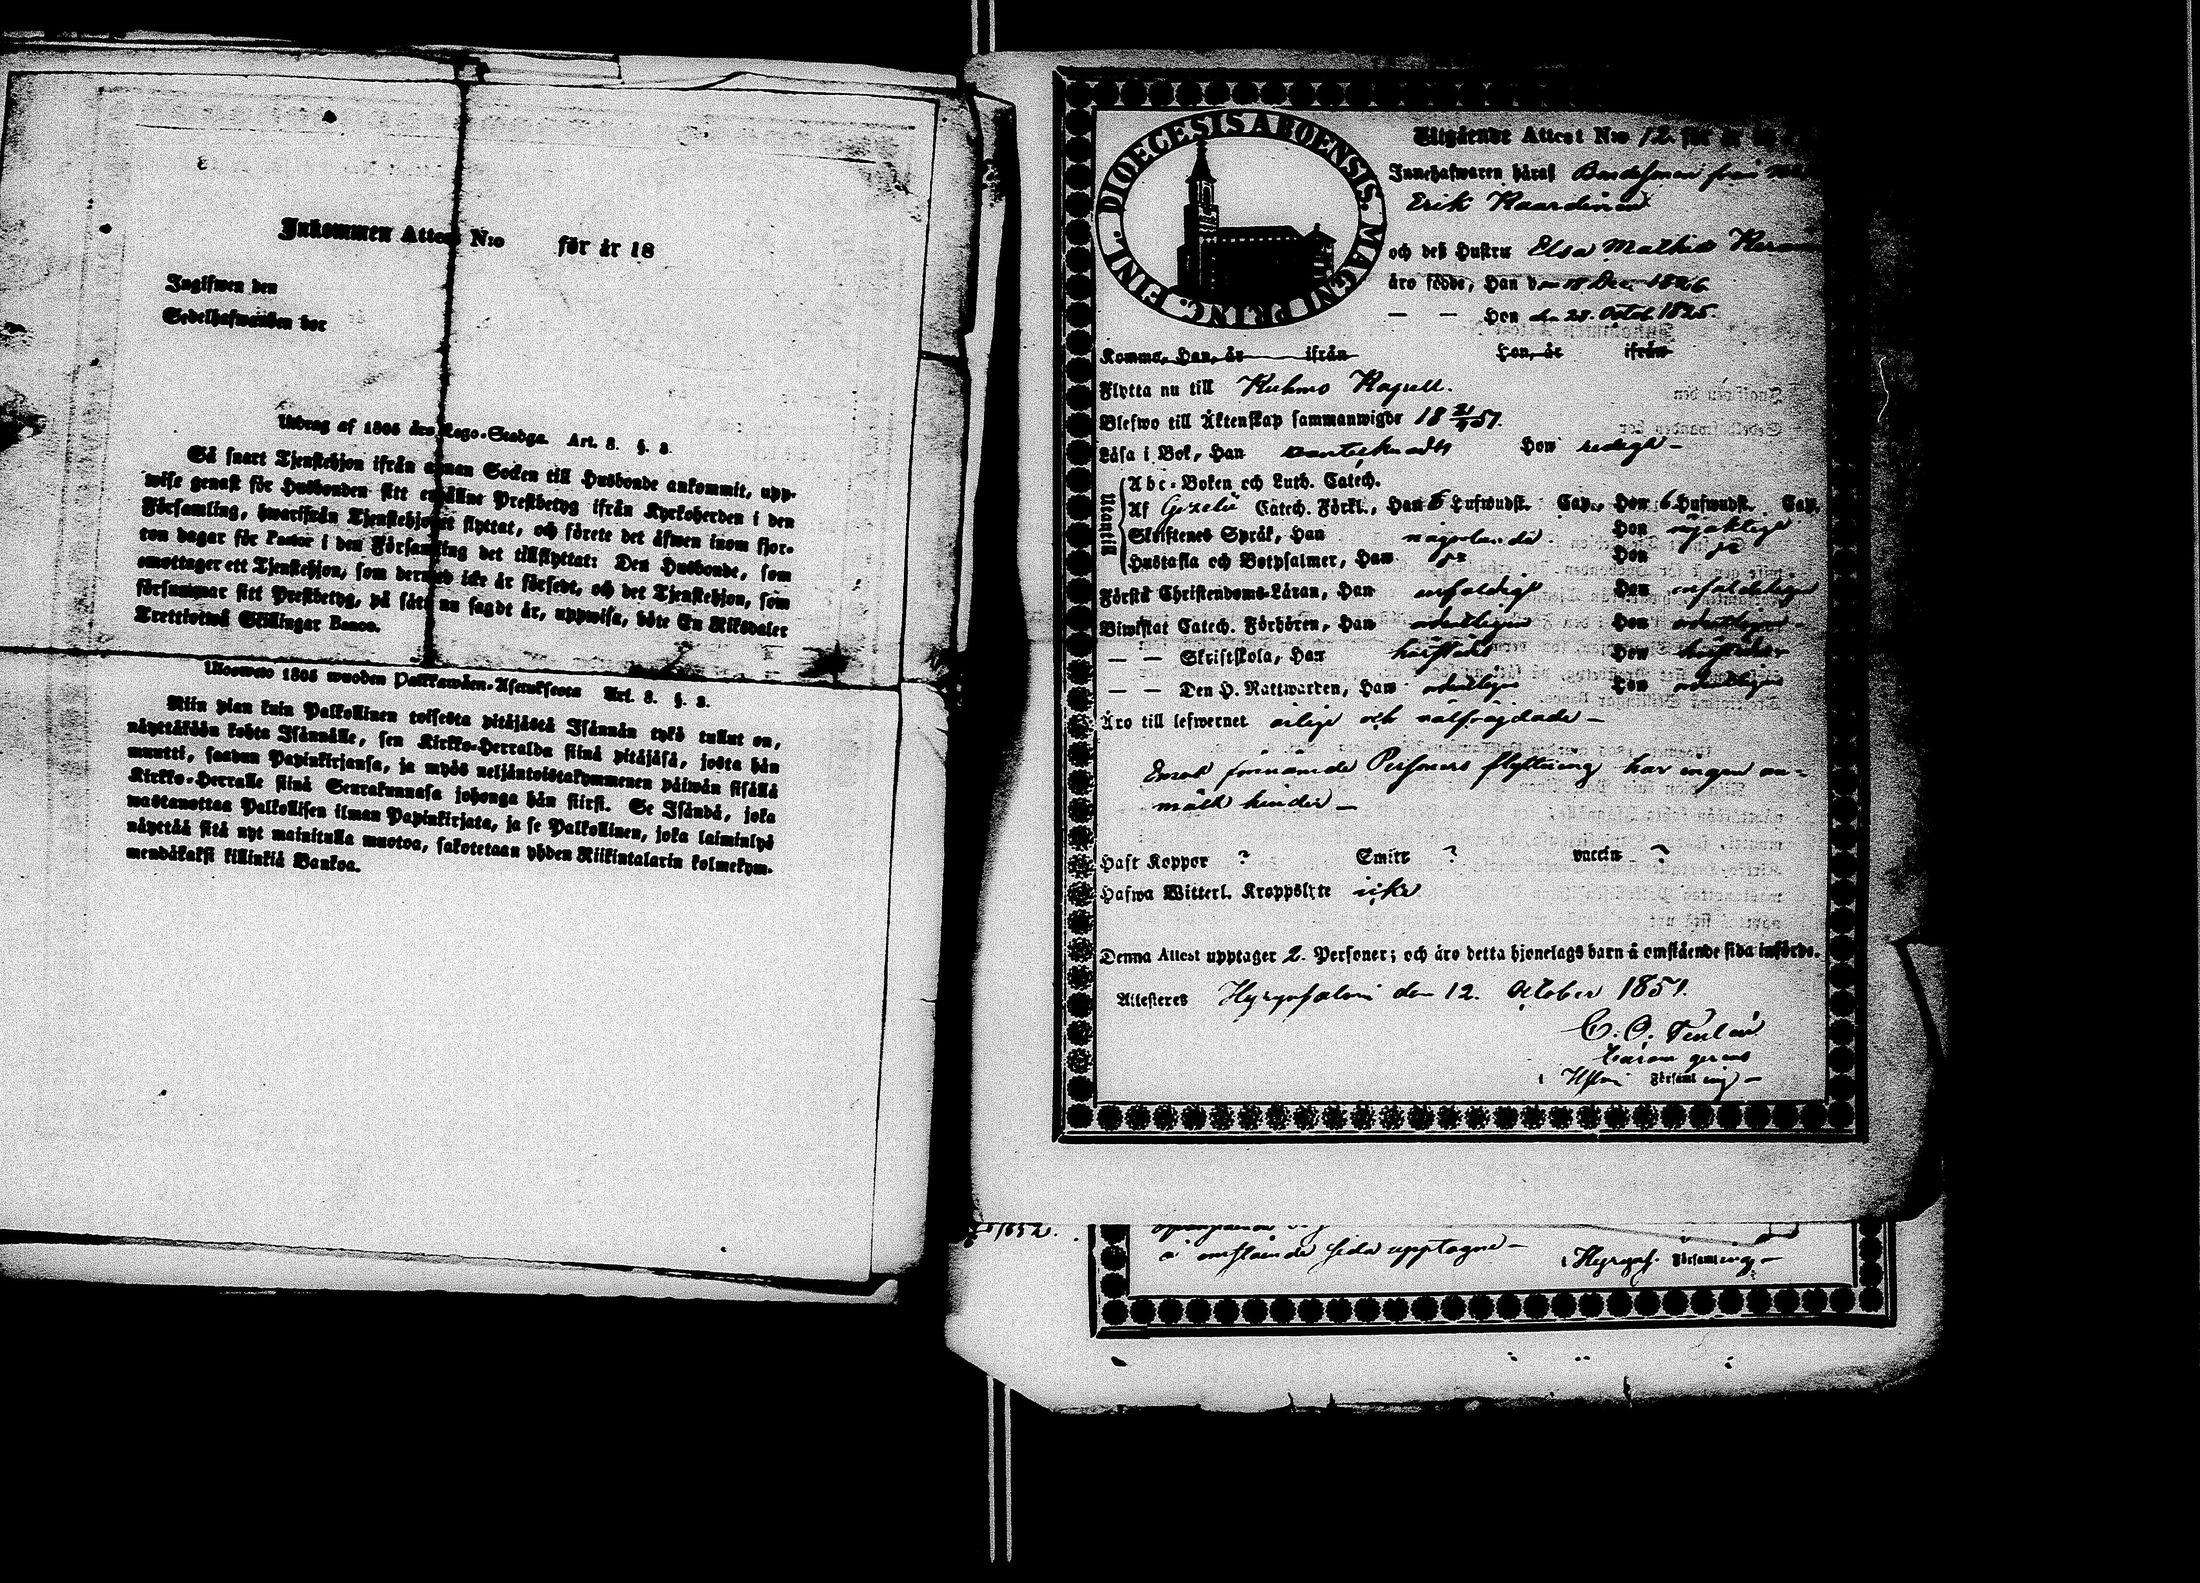 Inkommen Attest N:o för år 18
Ingifwen den
Sedelhafwanden bor
Utdrag af 1805 års Lego-Stadga. Art. 3. §. 3.
Så snart Tjenstehjon ifrån annan Socken till Husbonde ankommit, upp-
wise genast för Husbonden sitt erhållne Prestbetyg ifrån Kyrkoherden i den
Församling, hwarifrån Tjenstehjonet flyttat, och förete det äfwen inom fjor-
ton dagar för Pastor i den Församling det tillflyttat: Den Husbonde, som
emottager ett Tjenstehjon, som dermed icke är försedt, och det Tjenstehjon, som
försummar sitt Prestbetyg, på sätt nu sagdt är, uppwisa, böte En Riksdaler
Trettiotwå Skillingar Banco.
Ulosweto 1805 wuoden Palkkawäen-Asetuksesta Art. 3. §. 3.
Niin pian kuin Palkollinen toisesta pitäjästä Isännän tykö tullut on,
näyttäköön kohta Isännälle, sen Kirkko-Herralda siinä pitäjäsä, josta hän
muutti, saadun Papinkirjansa, ja myös neljäntoistakymmenen päiwän sisällä
Kirkko-Herralle siinä Seurakunnasa johonga hän siirsi. Se Isändä, joka
wastanottaa Palkollisen ilman Papinkirjata, ja se Palkollinen, joka laiminlyö
näyttää sitä nyt mainitulla muotoa, sakotetaan yhden Riikintalarin kolmekym-
mendäkaksi killinkiä Bankoa.
DIOECESIS ABOENSIS. MAGNI PRINC. FINL.
Utgående Attest N:o 12. för år
Innehafwaren häraf Bondesonen från
Erik Kaardinen
och deß Hustru Elsa Mathid.
äro födde, Han den 18 Dec. 1826
— — Hon den 28. Octob. 1825.
Komma, Han, år ifrån Hon, år ifrån
Flytta nu till Kuhmo Kapell.
Blefwo till Äktenskap sammanwigde 18 51.
Läsa i Bok, Han Hon redigt —
Utantill
Abc-Boken och Luth. Catech.
Af Gezelii Catech. Förkl., Han 6 Hufwudst. Cap., Hon 6 Hufwudst. Cap.
Skriftenes Språk, Han någorlunda Hon nöjaktigt
Hustafla och Botpsalmer, Han Hon
Förstå Christendoms-Läran, Han enfaldigt Hon enfaldeligen
Biwistat Catech. Förhören, Han ordentligen Hon ordentligen —
— — Skriftskola, Han härstädes Hon härstädes
— — Den H. Nattwarden, Han ordentligen Hon ordentligen
Äro till lefwernet ärlige och välfrägdade —
Emot förnämde Personers flyttning har ingen an-
mält hinder —
Haft Koppor ? Smitt ? vaccin ?
Hafwa Witterl. Kroppslyte icke
Denna Attest upptager 2. Personer; och äro detta hjonelags barn å omstående sida införde.
Attesteras Hyrynsalmi den 12. October 1851.
C. O.
Curam gerens
i Hslmi Församling —
1852.
å omstående sida upptagne —
i Hyryns. Församling —